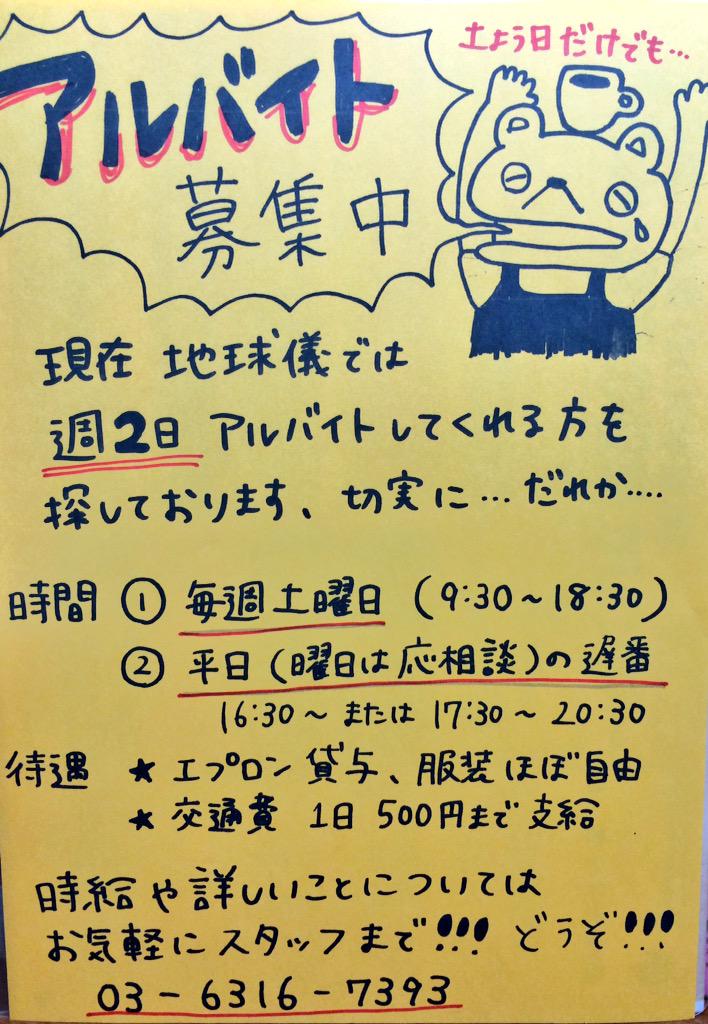 土よう日だけでも…
アルバイト
募集中
現在 地球儀では
週2日 アルバイトしてくれる方を
探しております、切実に…だれか‥‥
時間 ① 毎週土曜日 (9:30~18:30)
② 平日(曜日は応相談)の遅番
16:30~ または 17:30~20:30
待遇 ★ エプロン貸与、服装ほぼ自由
★ 交通費 1日 500円まで支給
時給や詳しいことについては
お気軽にスタッフまで!!! どうぞ!!!
03-6316-7393